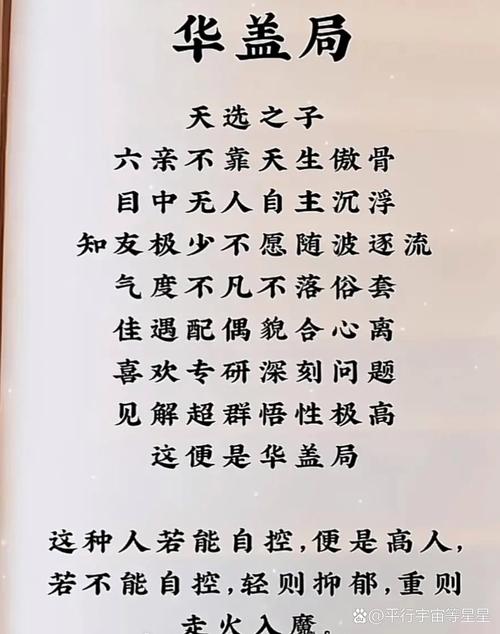 华盖局
天选之子
六亲不靠天生傲骨
目中无人自主沉浮
知友极少不愿随波逐流
气度不凡不落俗套
佳遇配偶貌合心离
喜欢专研深刻问题
见解超群悟性极高
这便是华盖局
这种人若能自控,便是高人,
若不能自控,轻则抑郁,重则
走火入魔。
@平行宇宙等星星